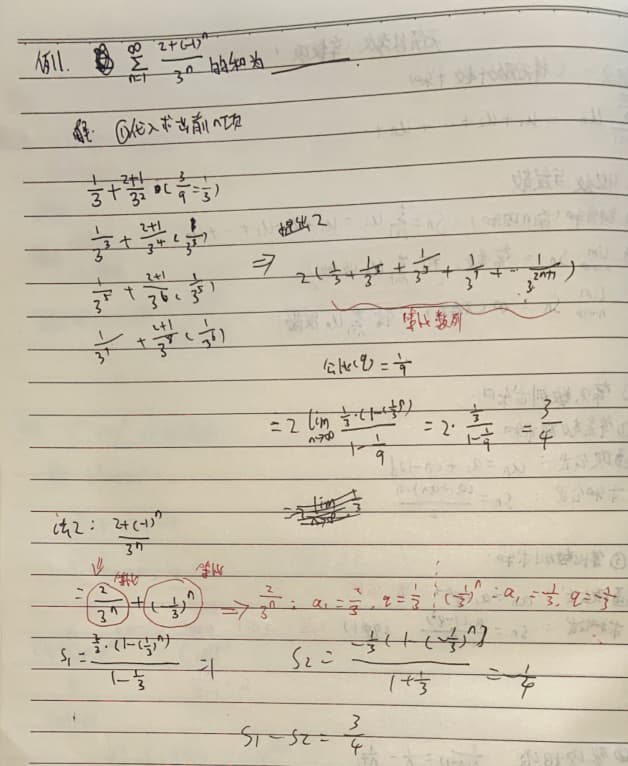 例11. ∑_{n=1}^{∞} (2+(-1)^n)/3^n 的和为 ______.
解: ①代入求出前n项
1/3 + (2+1)/3^2 (3/9 = 1/3)
1/3^3 + (2+1)/3^4 (1/3^3)
1/3^5 + (2+1)/3^6 (1/3^5)
1/3^7 + (2+1)/3^8
⇒ 提出2
2(1/3 + 1/3^3 + 1/3^5 + 1/3^7 + ⋯
等比数列
公比(q) = 1/9
= 2 lim_{n→∞} 1/3·(1-(1/3)^n)/(1-1/9) = 2·(1/3)/(1-1/9) = 3/4
法2: (2+(-1)^n)/3^n
等比 等比
= 2/3^n + (-1/3)^n ⇒ 2/3^n: a₁=2/3, q=1/3 (-1/3)^n: a₁=-1/3, q=-1/3
S₁ = 2/3·(1-(1/3)^n)/(1-1/3) = 1 S₂ = -1/3(1-(-1/3)^n)/(1+1/3) = -1/4
S₁ - S₂ = 3/4